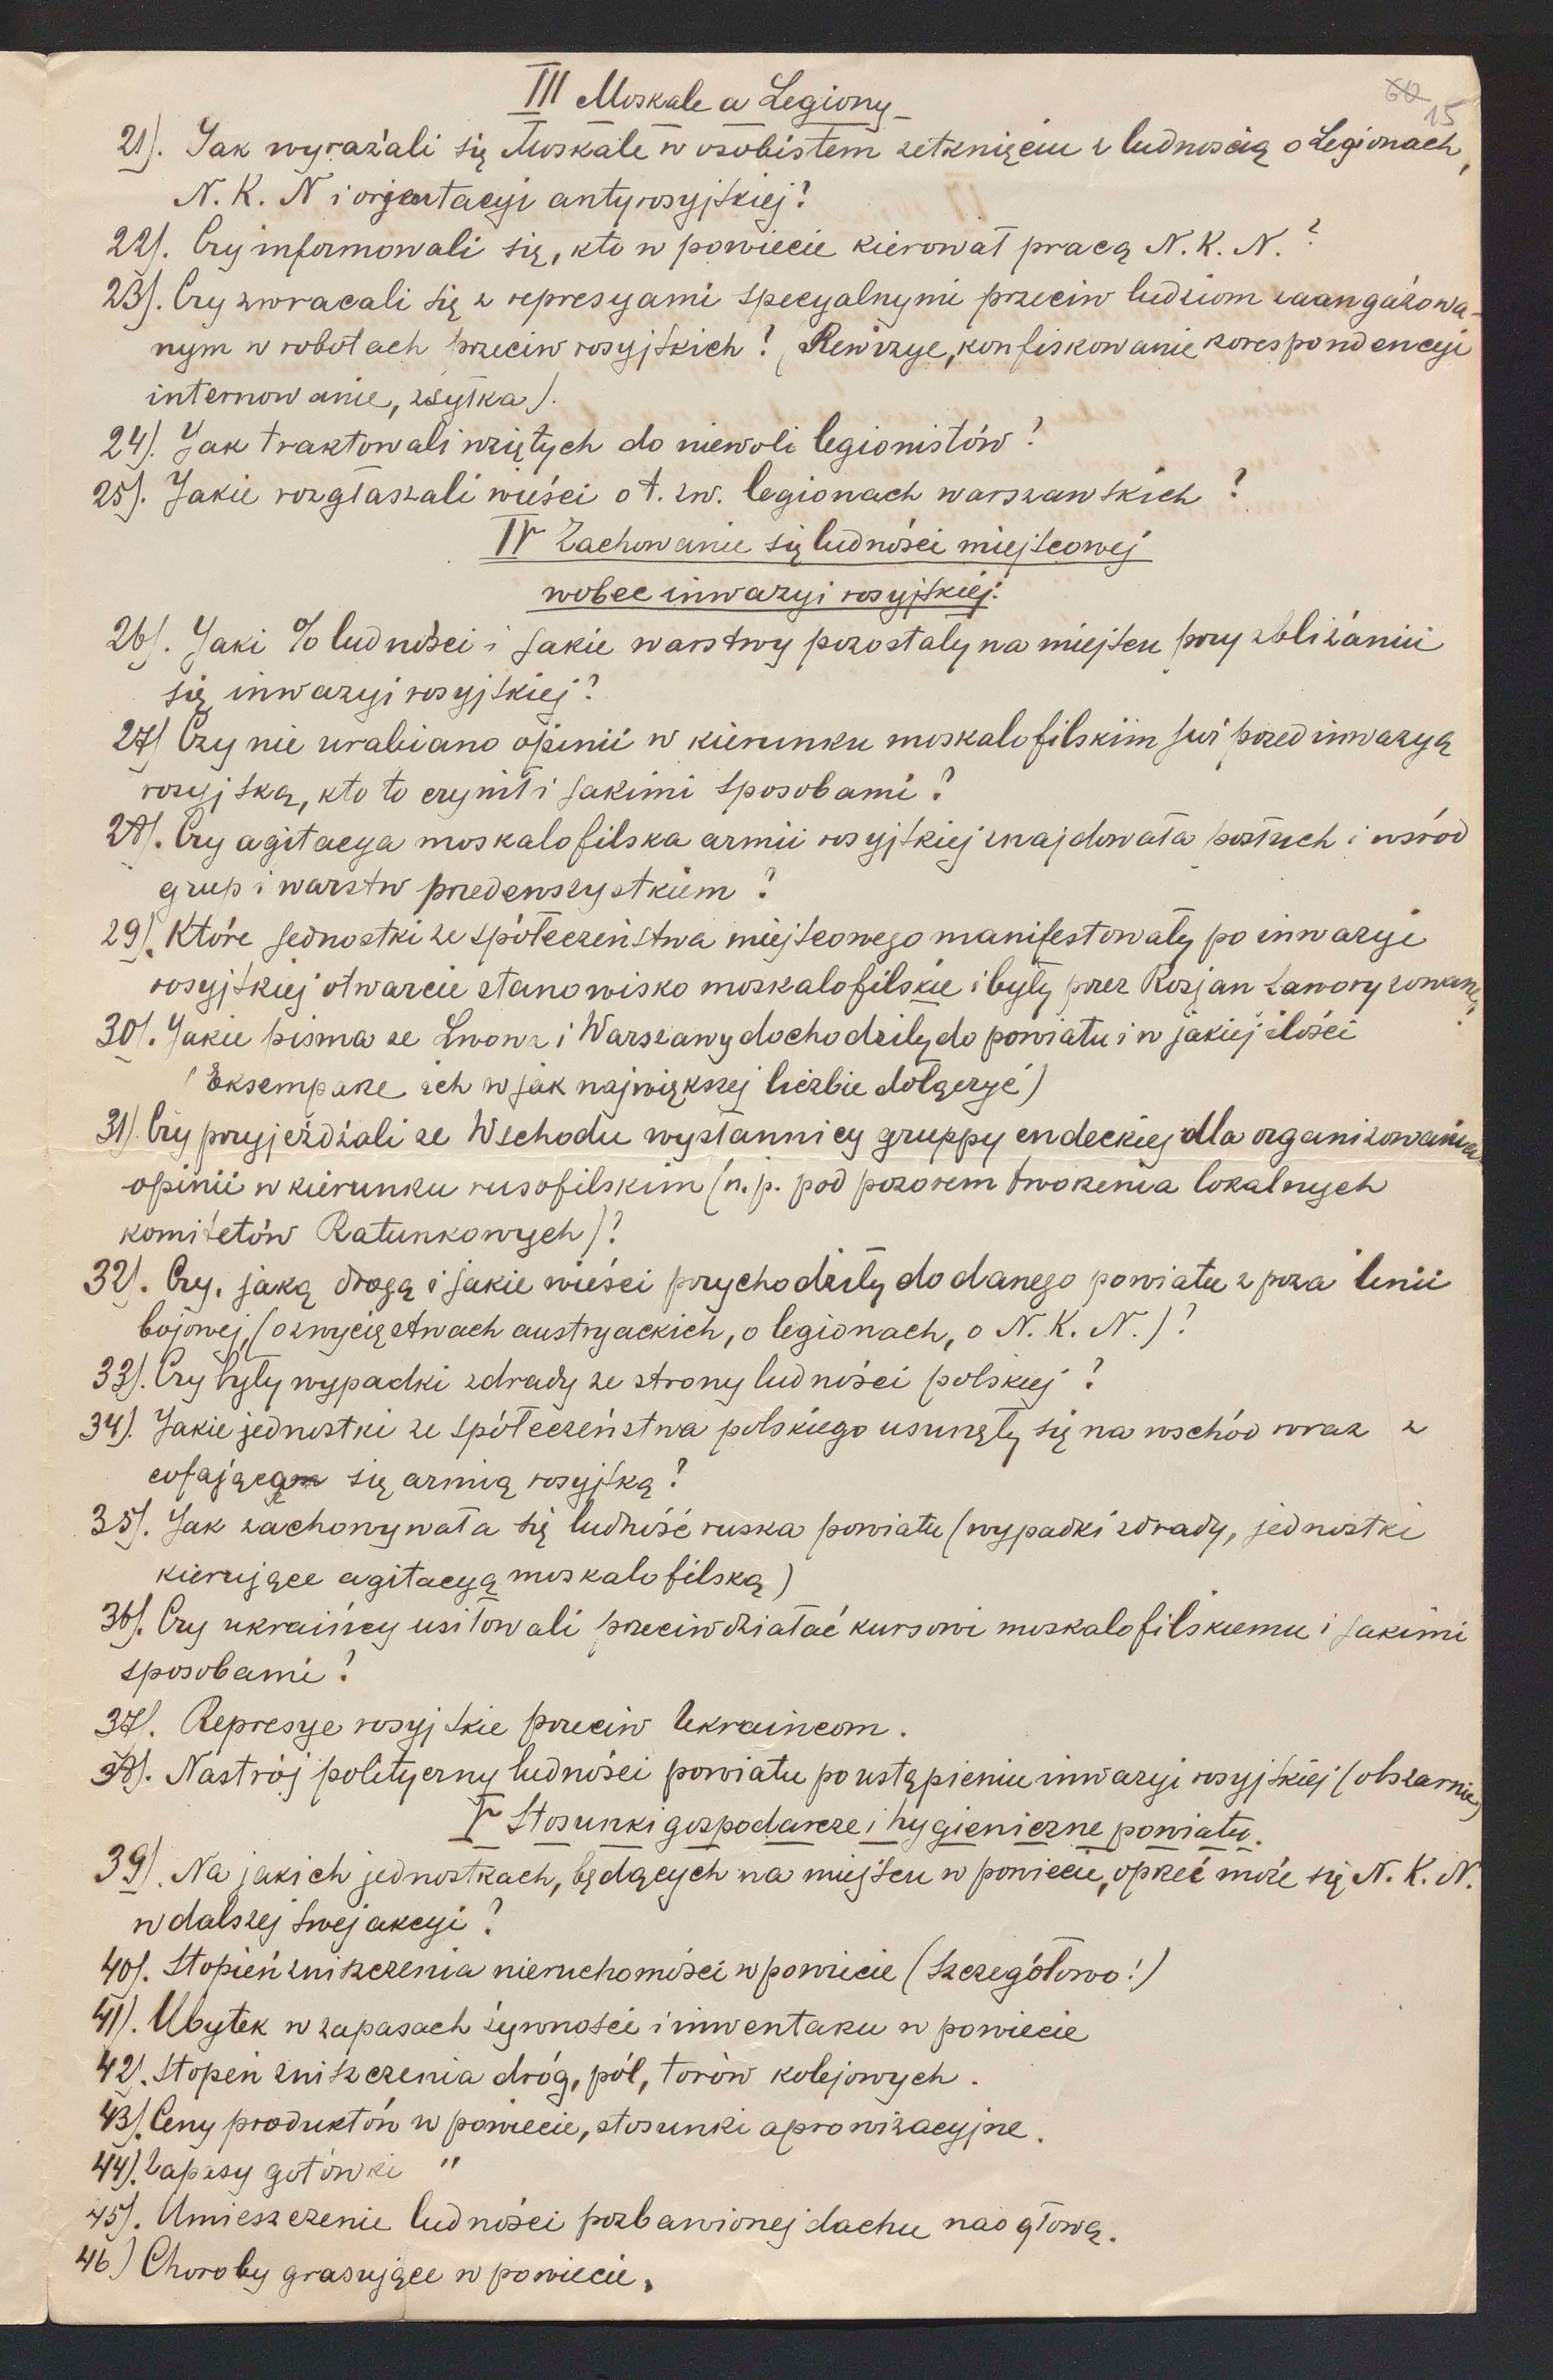 60 15
III Moskale a Legiony
21). Jak wyrażali się Moskale w osobistem zetknięciu z ludnością o Legionach,
N. K. N i orjentacyi antyrosyjskiej?
22). Czy informowali się, kto w powiecie kierował pracą N. K. N.?
23). Czy zwracali się z represyami specyalnymi przeciw ludziom zaangażowa-
nym w robotach przeciw rosyjskich? (Rewizye, konfiskowanie korespondencyi
internowanie, zsyłka).
24). Jak traktowali wziętych do niewoli legionistów?
25). Jakie rozgłaszali wieści o t. zw. legionach warszawskich?
IV Zachowanie się ludności miejscowej
wobec inwazyi rosyjskiej.
26). Jaki % ludności i jakie warstwy pozostały na miejscu przy zbliżaniu
się inwazyi rosyjskiej?
27) Czy nie urabiano opinii w kierunku moskalofilskim już przed inwazyą
rosyjską, kto to czynił i jakimi sposobami?
28). Czy agitacya moskalofilska armii rosyjskiej znajdowała posłuch i wśród
grup i warstw przedewszystkiem?
29). Które jednostki ze społeczeństwa miejscowego manifestowały po inwazyi
rosyjskiej otwarcie stanowisko moskalofilskie i były przez Rosjan faworyzowane?
30). Jakie pisma ze Lwowa i Warszawy dochodziły do powiatu i w jakiej ilości
(Eksemparze ich w jak największej liczbie dołączyć)
31) Czy przyjeżdżali ze Wschodu wysłannicy gruppy endeckiej dla organizowania
opinii w kierunku rusofilskim (n. p. pod pozorem tworzenia lokalnych
komitetów Ratunkowych)?
32). Czy, jaką drogą i jakie wieści przychodziły do danego powiatu z poza linii
bojowej, (o zwycięstwach austryackich, o legionach, o N. K. N.)?
33). Czy były wypadki zdrady ze strony ludności polskiej?
34). Jakie jednostki ze społeczeństwa polskiego usunęły się na wschód wraz z
cofającą się armią rosyjską?
35). Jak zachowywała się ludność ruska powiatu (wypadki zdrady, jednostki
kierujące agitacyą moskalofilską)
36). Czy ukraińcy usiłowali przeciwdziałać kursowi moskalofilskiemu i jakimi
sposobami?
37). Represye rosyjskie przeciw Ukraincom.
38). Nastrój polityczny ludności powiatu po ustąpieniu inwazyi rosyjskiej (obszarnie)
V Stosunki gospodarcze i hygieniczne powiatu.
39). Na jakich jednostkach, będących na miejscu w powiecie, oprzeć może się N. K. N.
w dalszej swej akcyi?
40). Stopień zniszczenia nieruchomości w powiecie (szczegółowo!)
41). Ubytek w zapasach żywności i inwentarzu w powiecie
42). Stopeń zniszczenia dróg, pól, torów kolejowych.
43). Ceny produktów w powiecie, stosunki aprowizacyjne.
44). Zapasy gotówki "
45). Umieszczenie ludności pozbawionej dachu nad głową.
46) Choroby grasujące w powiecie.